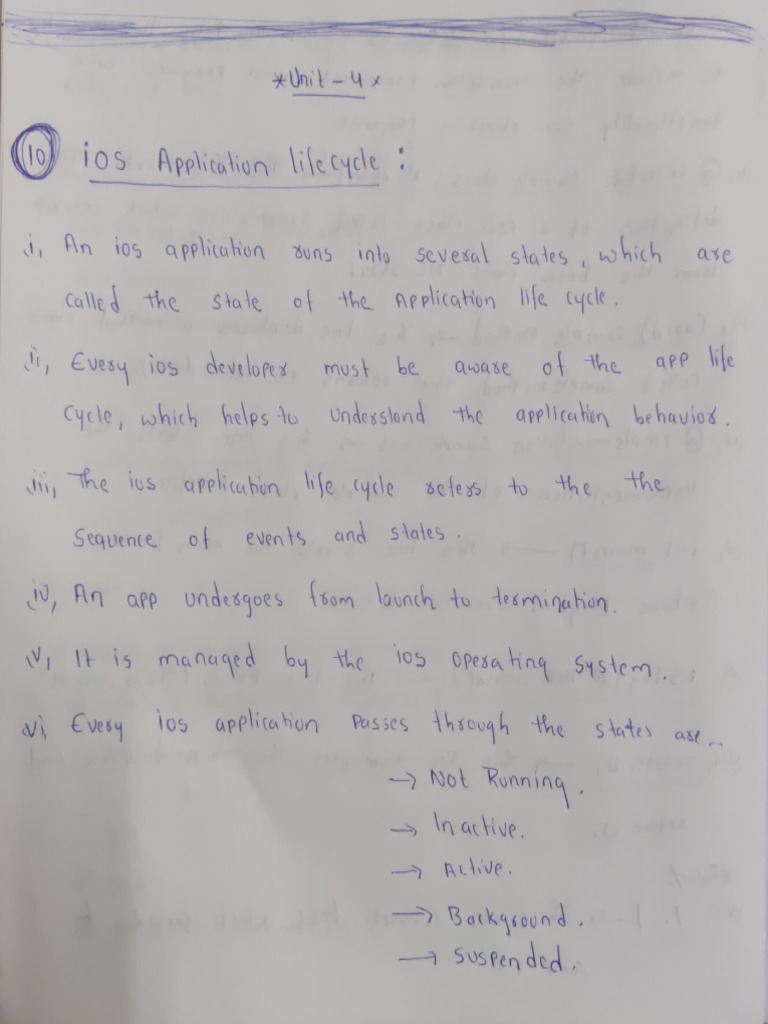 * Unit - 4 *
10 ios Application life cycle :
i, An ios application runs into several states, which are
called the state of the Application life cycle.
ii, Every ios developer must be aware of the app life
cycle, which helps to understand the application behavior.
iii, The ios application life cycle refers to the the
sequence of events and states.
iv, An app undergoes from launch to termination.
v, It is managed by the ios operating system.
vi, Every ios application passes through the states are..
→ Not Running.
→ Inactive.
→ Active.
→ Background.
→ Suspended.